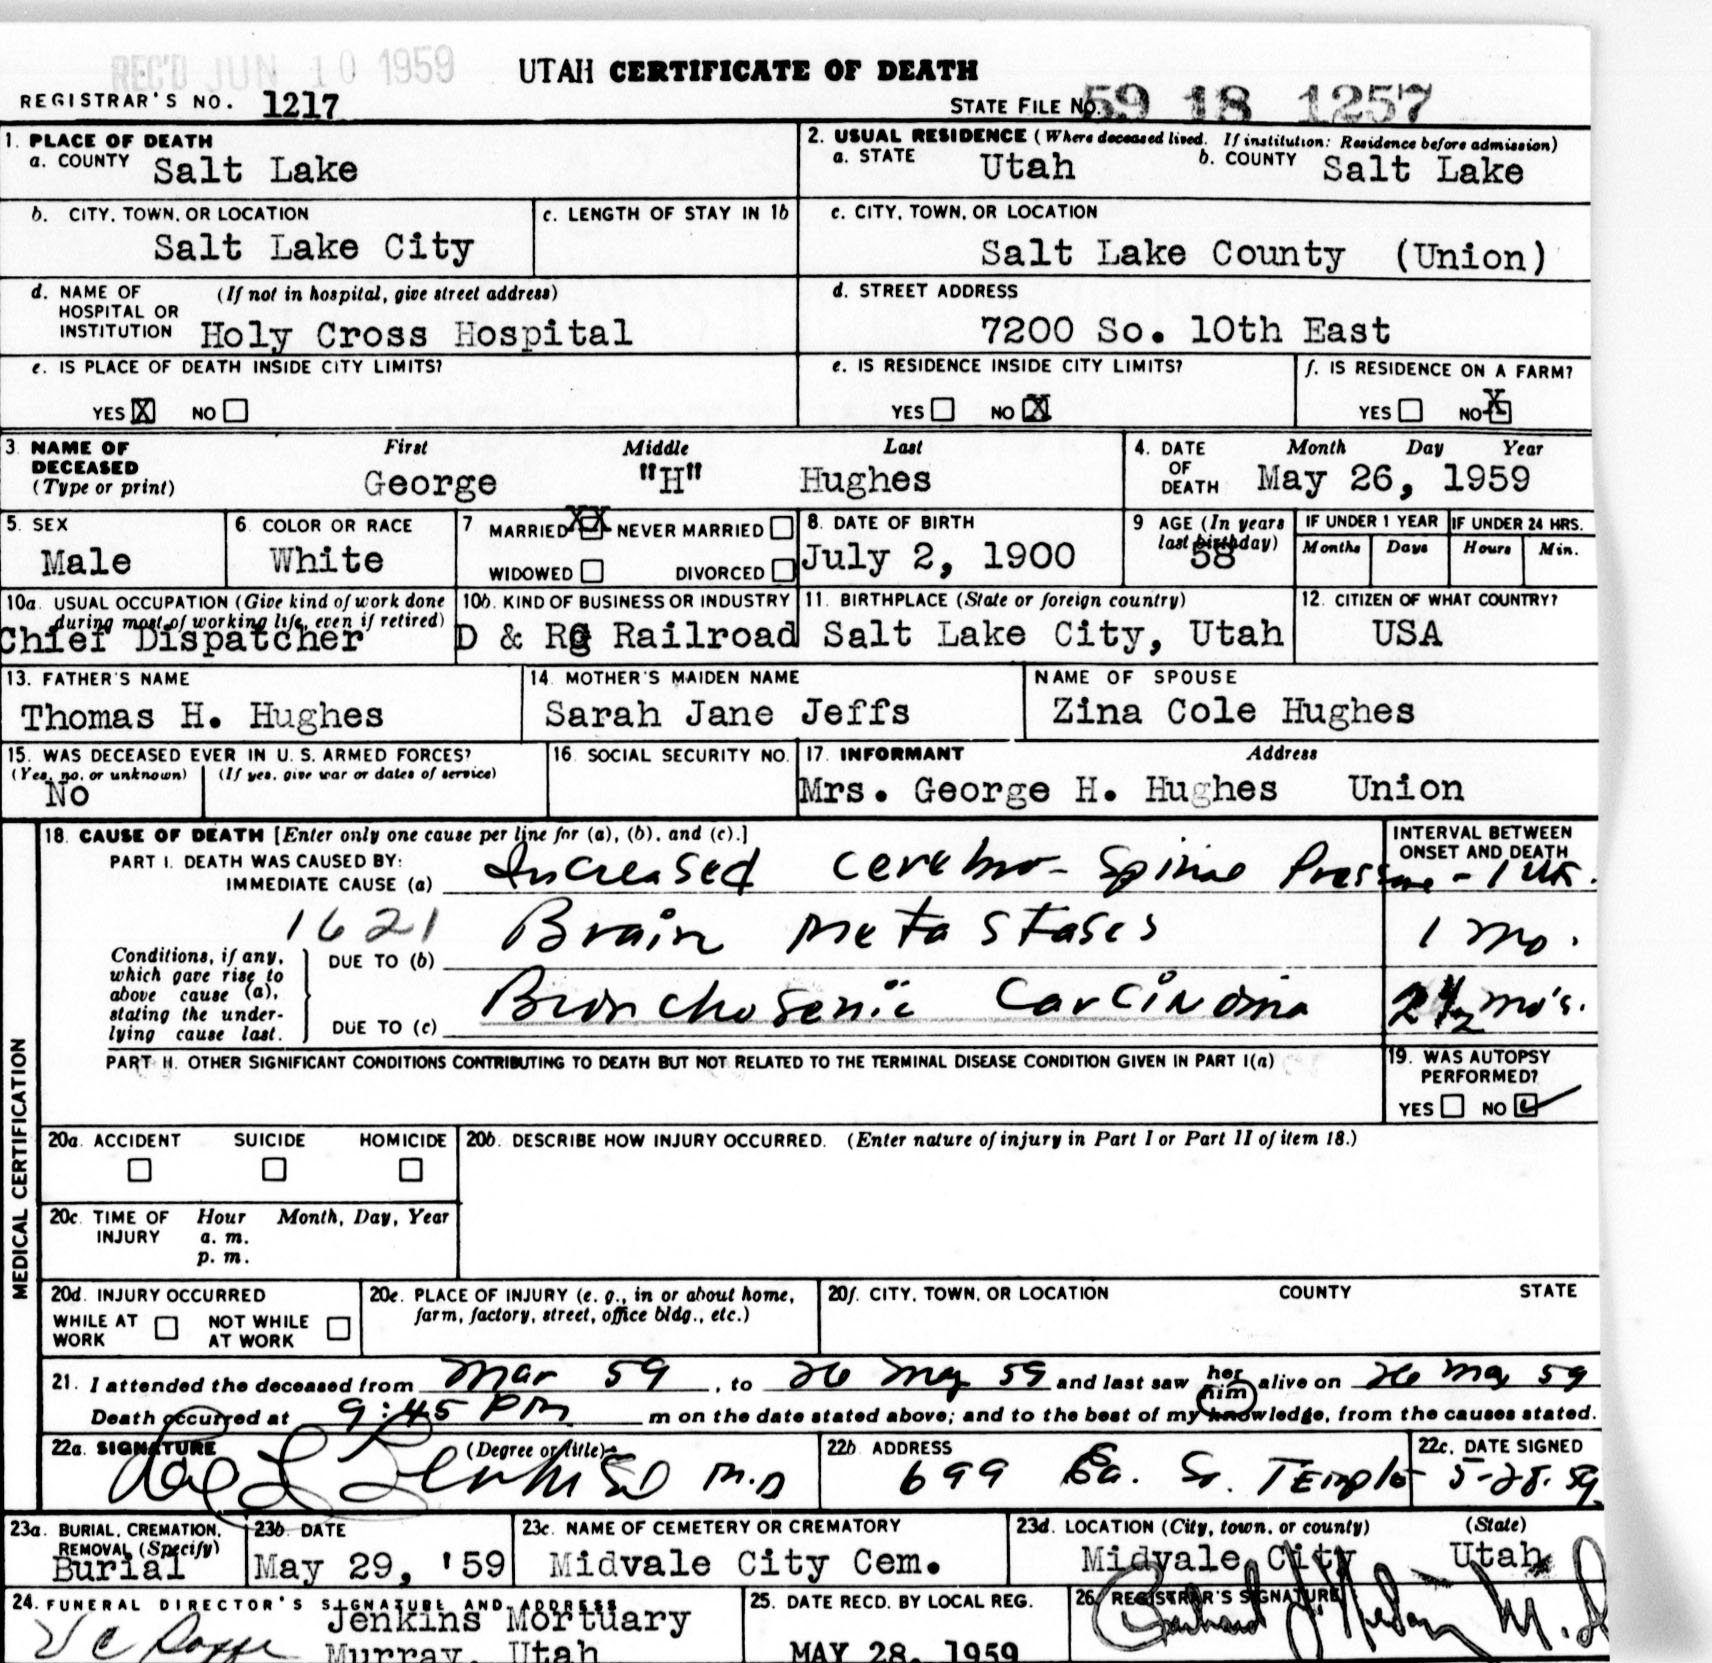 REC'D JUN 10 1959
UTAH CERTIFICATE OF DEATH
REGISTRAR'S NO. 1217
STATE FILE NO. 59 18 1257
1. PLACE OF DEATH
a. COUNTY Salt Lake
2. USUAL RESIDENCE (Where deceased lived. If institution: Residence before admission)
a. STATE Utah b. COUNTY Salt Lake
b. CITY, TOWN, OR LOCATION
Salt Lake City
c. LENGTH OF STAY IN 1b
c. CITY, TOWN, OR LOCATION
Salt Lake County (Union)
d. NAME OF HOSPITAL OR INSTITUTION (If not in hospital, give street address)
Holy Cross Hospital
d. STREET ADDRESS
7200 So. 10th East
e. IS PLACE OF DEATH INSIDE CITY LIMITS?
YES X NO
e. IS RESIDENCE INSIDE CITY LIMITS?
YES NO X
f. IS RESIDENCE ON A FARM?
YES NO X
3 NAME OF DECEASED (Type or print)
First Middle Last
George "H" Hughes
4. DATE OF DEATH Month Day Year
May 26, 1959
5. SEX
Male
6. COLOR OR RACE
White
7 MARRIED XX NEVER MARRIED
WIDOWED DIVORCED
8. DATE OF BIRTH
July 2, 1900
9 AGE (In years last birthday)
58
IF UNDER 1 YEAR IF UNDER 24 HRS.
Months Days Hours Min.
10a. USUAL OCCUPATION (Give kind of work done during most of working life, even if retired)
Chief Dispatcher
10b. KIND OF BUSINESS OR INDUSTRY
D & RG Railroad
11. BIRTHPLACE (State or foreign country)
Salt Lake City, Utah
12. CITIZEN OF WHAT COUNTRY?
USA
13. FATHER'S NAME
Thomas H. Hughes
14. MOTHER'S MAIDEN NAME
Sarah Jane Jeffs
NAME OF SPOUSE
Zina Cole Hughes
15. WAS DECEASED EVER IN U. S. ARMED FORCES?
(Yes, no, or unknown) (If yes, give war or dates of service)
No
16. SOCIAL SECURITY NO.
17. INFORMANT Address
Mrs. George H. Hughes Union
MEDICAL CERTIFICATION
18. CAUSE OF DEATH [Enter only one cause per line for (a), (b), and (c).]
INTERVAL BETWEEN ONSET AND DEATH
PART I. DEATH WAS CAUSED BY:
IMMEDIATE CAUSE (a) Increased Cerebro-Spinal Pressure - 1 Wk.
1621
Conditions, if any, which gave rise to above cause (a), stating the underlying cause last.
DUE TO (b) Brain Metastases 1 mo.
DUE TO (c) Bronchogenic Carcinoma 2 1/2 mo's.
PART II. OTHER SIGNIFICANT CONDITIONS CONTRIBUTING TO DEATH BUT NOT RELATED TO THE TERMINAL DISEASE CONDITION GIVEN IN PART I(a)
19. WAS AUTOPSY PERFORMED?
YES NO ✓
20a. ACCIDENT SUICIDE HOMICIDE
20b. DESCRIBE HOW INJURY OCCURRED. (Enter nature of injury in Part I or Part II of item 18.)
20c. TIME OF INJURY Hour Month, Day, Year
a. m.
p. m.
20d. INJURY OCCURRED
WHILE AT WORK NOT WHILE AT WORK
20e. PLACE OF INJURY (e. g., in or about home, farm, factory, street, office bldg., etc.)
20f. CITY, TOWN, OR LOCATION COUNTY STATE
21. I attended the deceased from Mar 59, to 26 May 59 and last saw her him alive on 26 May 59
Death occurred at 9:45 PM m on the date stated above; and to the best of my knowledge, from the causes stated.
22a. SIGNATURE (Degree or title)
M.D
22b ADDRESS
699 Ea. So. Temple
22c. DATE SIGNED
5-28-59
23a. BURIAL, CREMATION, REMOVAL (Specify)
Burial
23b. DATE
May 29, '59
23c. NAME OF CEMETERY OR CREMATORY
Midvale City Cem.
23d. LOCATION (City, town, or county) (State)
Midvale City Utah
24. FUNERAL DIRECTOR'S SIGNATURE AND ADDRESS
Jenkins Mortuary
Murray, Utah
25. DATE RECD. BY LOCAL REG.
MAY 28, 1959
26. REGISTRAR'S SIGNATURE
M.D